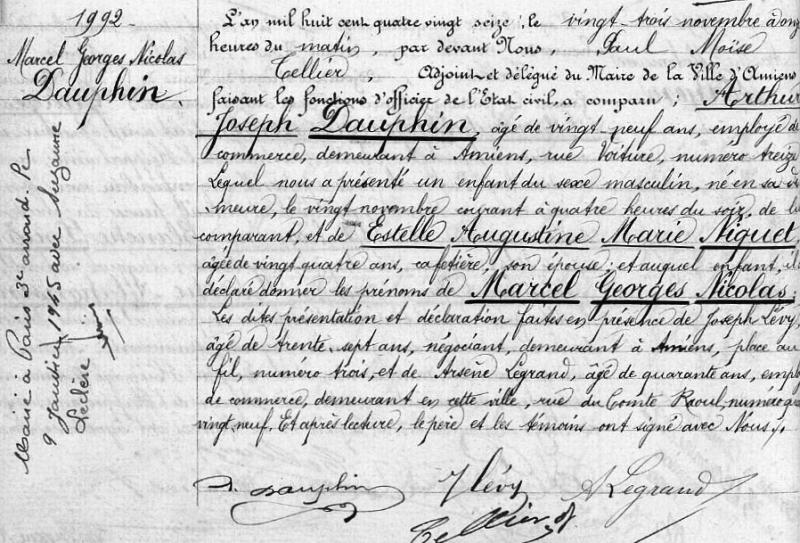 1992
Marcel Georges Nicolas
Dauphin.
Marié à Paris 3e arrond
9 1945 avec Suzanne
Leclère
L'an mil huit cent quatre vingt seize, le vingt-trois novembre à onz
heures du matin, par devant Nous, Paul Moïse
Tellier, Adjoint et délégué du Maire de la Ville d'Amiens
faisant les fonctions d'officier de l'Etat civil, a comparu; Arthur
Joseph Dauphin, âgé de vingt neuf ans, employé de
commerce, demeurant à Amiens, rue Voiture, numéro treize
Lequel nous a présenté un enfant du sexe masculin, né en sa de
meure, le vingt novembre courant à quatre heures du soir, de lu
comparant, et de Estelle Augustine Marie Niquet
âgée de vingt quatre ans, cafetière, son épouse; et auquel enfant, il
déclaré donner les prénoms de Marcel Georges Nicolas.
Les dites présentation et déclaration faites en présence de Joseph Lévy,
âgé de trente-sept ans, négociant, demeurant à Amiens, place au
fil, numéro trois, et de Arsène Legrand, âgé de quarante ans, empl
de commerce, demeurant en cette ville, rue du Comte Raoul, numéro q
vingt neuf. Et après lecture, le père et les témoins ont signé avec Nous.
A. Dauphin J Lévy A Legrand
Tellier